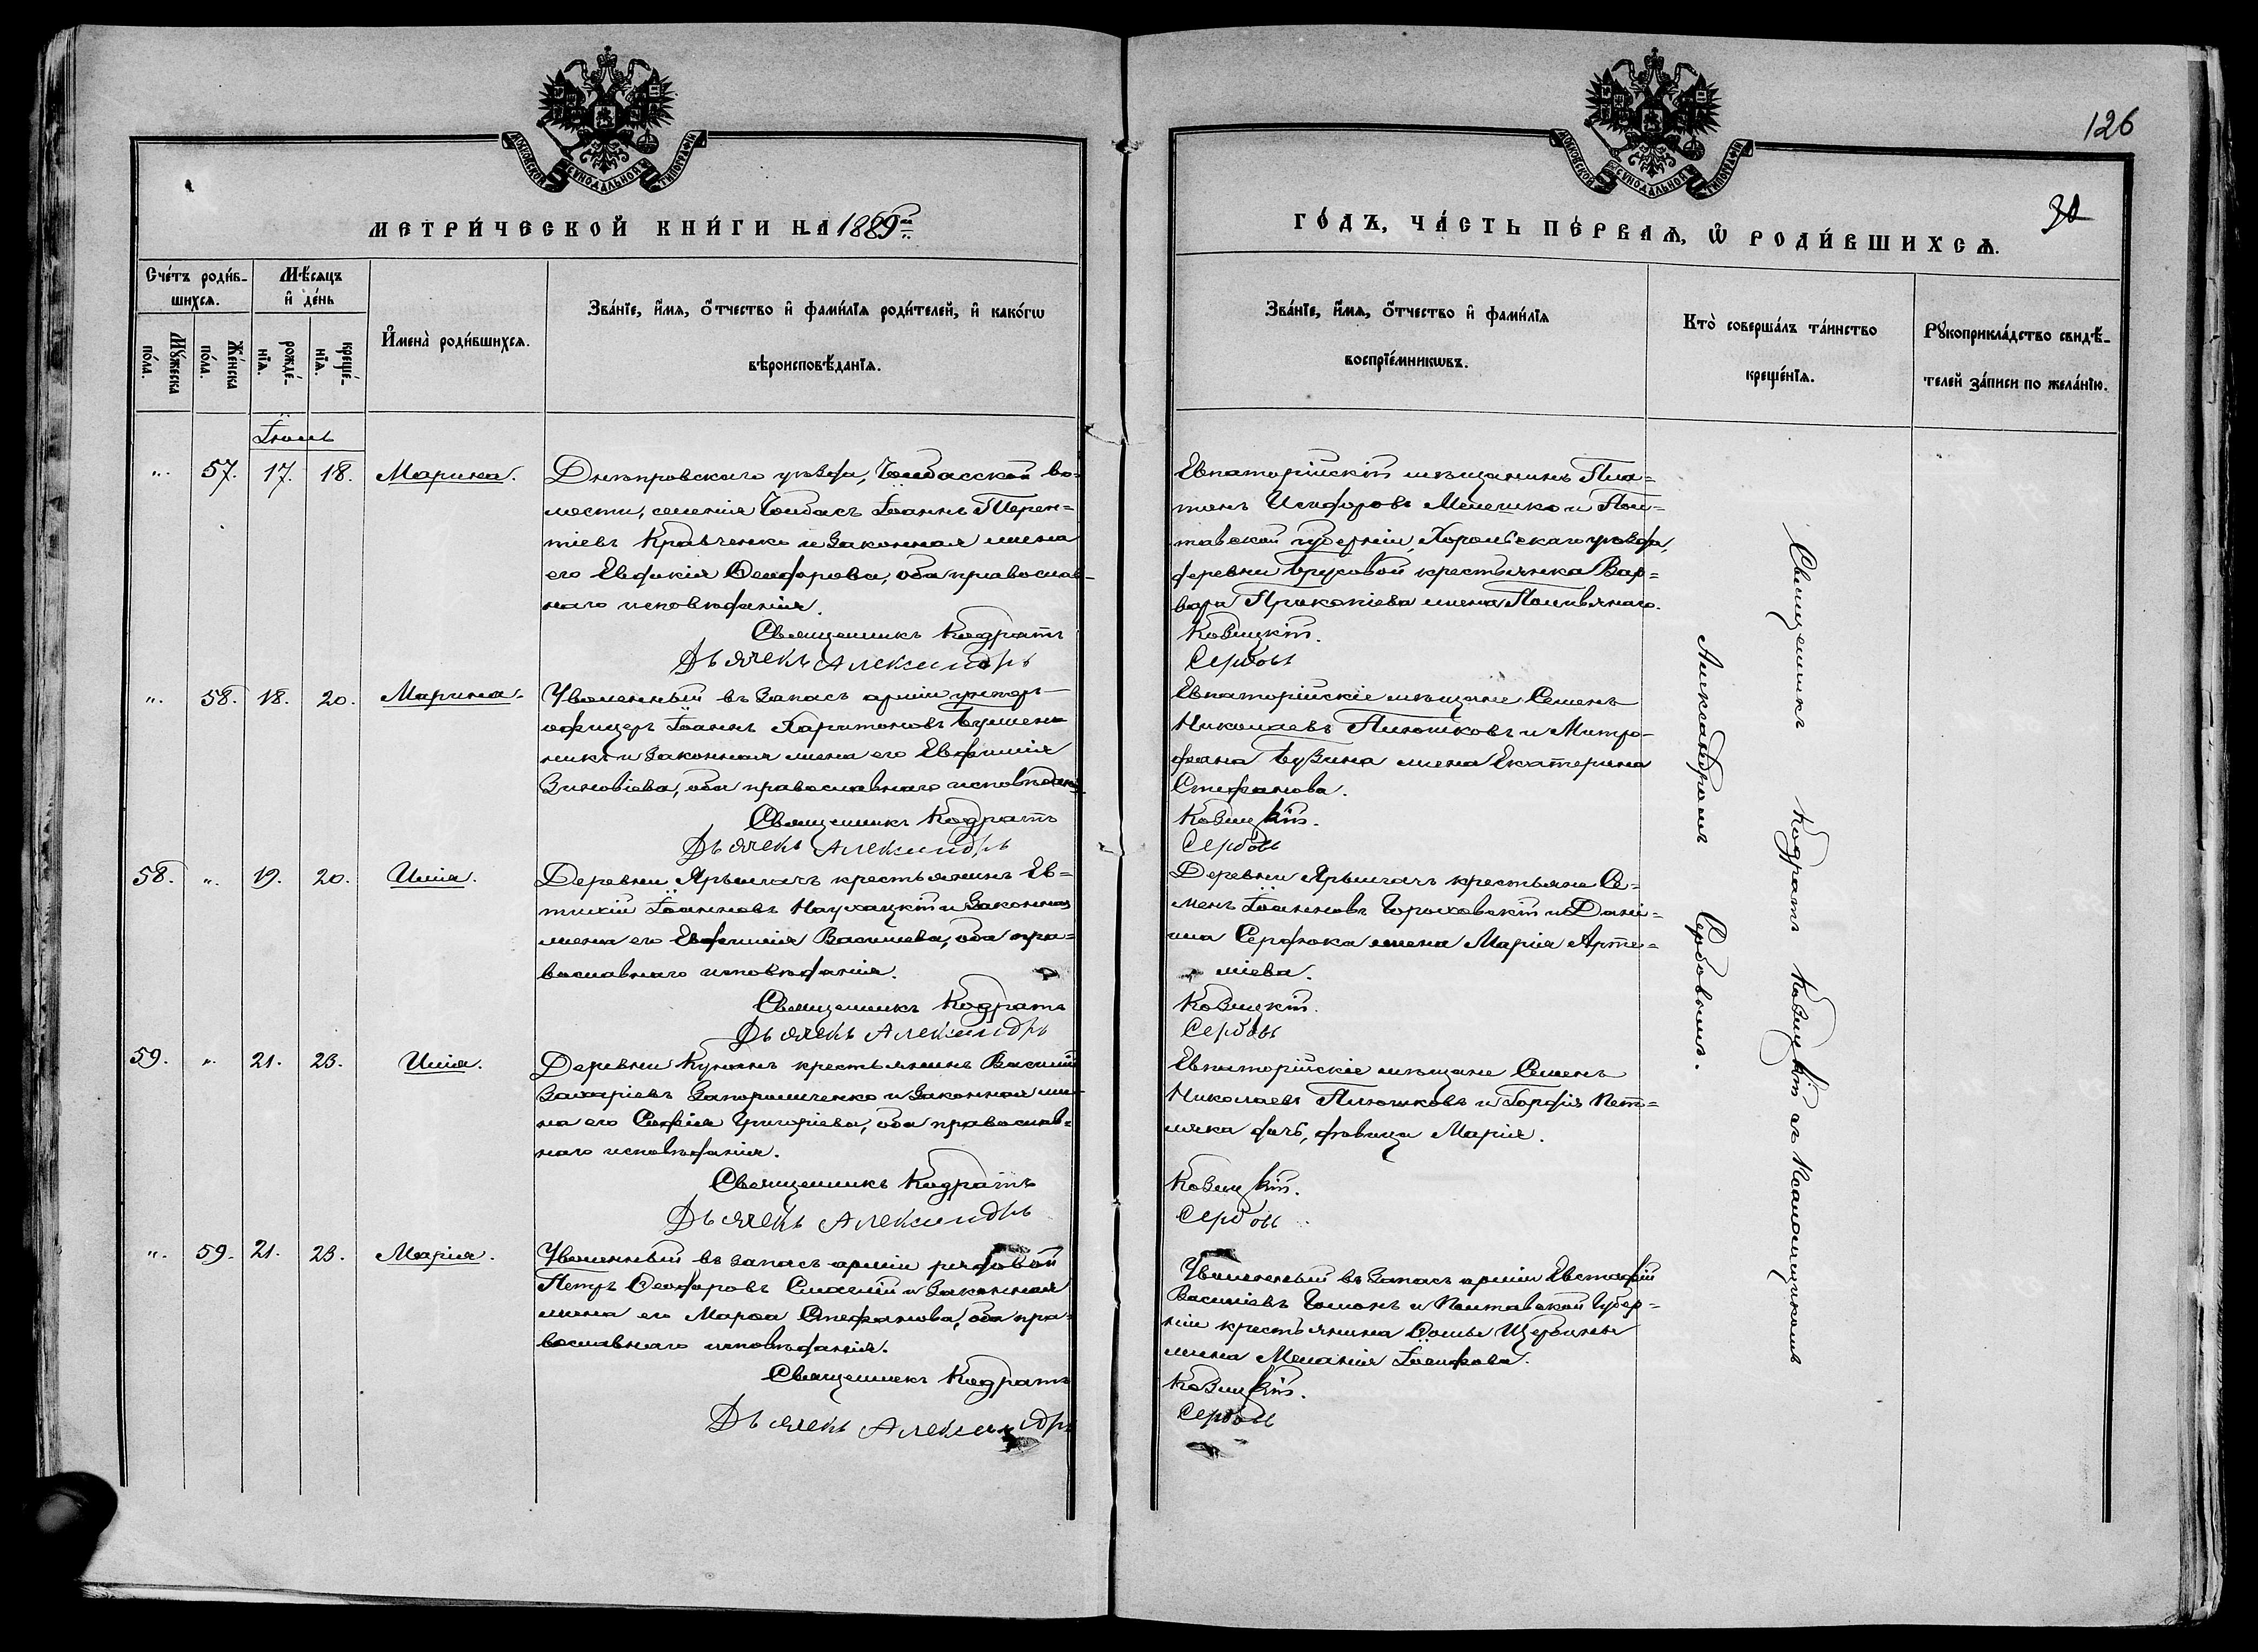 126
30
МЕТРИ́ЧЕСКОЙ КНИ́ГИ НА 1889й
ГО́ДЪ, ЧА́СТЬ ПЕ́РВАѦ, Ѡ РОДИ́ВШИХСѦ.
Сче́тъ роди́в-
шихся.
Мѣ́сяцъ
и де́нь
Му́жеска
по́ла.
Же́нска
по́ла.
рожде́-
нїя.
креще́-
нїя.
Имена̀ роди́вшихся.
Зва́нїе, и́мя, о́тчество и фами́лїя роди́телей, и како́гѡ
вѣроисповѣ́данїя.
Зва́нїе, и́мя, о́тчество и фами́лїя
воспрїе́мникѡвъ.
Кто̀ соверша́лъ та́инство
креще́нїя.
Рꙋкоприкла́дство свидѣ́-
телей за́писи по жела́нїю.
Іюнь
„. 57. 17. 18. Марина.
Днѣпровскаго уѣзда, Чолбасской во-
лости, селенія Чолбасъ Іоаннъ Терен=
тіевъ Кравченко и законная жена
его Евдокія Ѳеодорова, оба православ-
наго исповѣданія.
Священникъ Кодратъ
Дьячекъ Александръ
Евпаторійскій мѣщанинъ Пла=
тонъ Исидоровъ Мелешко и Пол=
тавской губерніи, Хорольскаго уѣзда,
деревни Брусовой крестьянка Вар=
вара Прокопіева жена Поливянаго.
Козицкій.
Сербовъ
„. 58. 18. 20. Марина.
Уволенный въ запасъ арміи унтер-
офицеръ Іоаннъ Харитоновъ
и законная жена его Евфимія
Зиновіева, оба православнаго исповѣдані
Священникъ Кодратъ
Дьячекъ Александръ
Евпаторійскіе мѣщане Семенъ
Николаевъ Плюшковъ и Митро-
фана Бузина жена Екатерина
Стефанова.
Козицкій.
Сербовъ
58. „. 19. 20. Илія.
Деревни Ярылгачъ крестьянинъ Ев=
тихій Іоанновъ Наухацкій и законная
жена его Евфимія Василіева, оба пра=
вославнаго исповѣданія.
Священникъ Кодратъ
Дьячекъ Александръ
Деревни Ярылгачъ крестьяне Се=
менъ Іоанновъ Гороховскій и Дані=
ила Сердюка жена Марія Арте=
міева.
Козицкій.
Сербовъ
59. „. 21. 23. Илія.
Деревни Кунанъ крестьянинъ Василій
Захаріевъ Запорожченко и законная же-
на его Софія Григоріева, оба православ=
наго исповѣданія.
Священникъ Кодратъ
Дьячекъ Александръ
Евпаторійскіе мѣщане Семенъ
Николаевъ Плюшковъ и Гордія Пет=
ляка дочь, дѣвица Марія.
Козицкій.
Сербовъ
„. 59. 21. 23. Марія.
Уволенный въ запасъ арміи рядовой
Петръ Ѳеодоровъ Смаглій и законная
жена его Марѳа Стефанова, оба пра-
вославнаго исповѣданія.
Священникъ Кодратъ
Дьячекъ Александръ
Уволенный въ запасъ арміи Евстафій
Василіевъ Гомонъ и Полтавской Губер=
ніи крестьянина Ѳомы Щербины
жена Меланія Іосифова.
Козицкій.
Сербовъ
Священникъ Кодратъ Козицкій съ псаломщикомъ
Александромъ Сербовымъ.